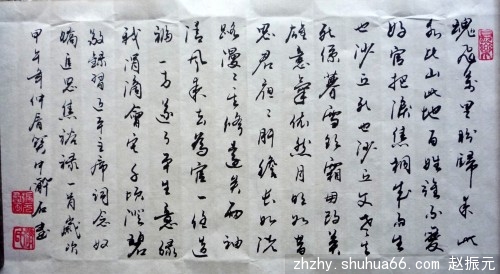 魂飛萬里盼歸来此
水此山此地百姓誰不愛
好官把淚焦桐成雨生
也沙丘死也沙丘父老生
死係暮雪朝霜毋改英
雄意氣依然月明如昔
思君夜夜肝胆長如洗
路漫漫其修遠矣兩袖
清風来去為官一任造
福一方遂了平生意緑
我涓滴會它千頃澄碧
敬録習近平主席詞念奴
嬌追思焦裕禄一首歲次
甲午年仲
zhzhy.shuhua66.com 赵振元